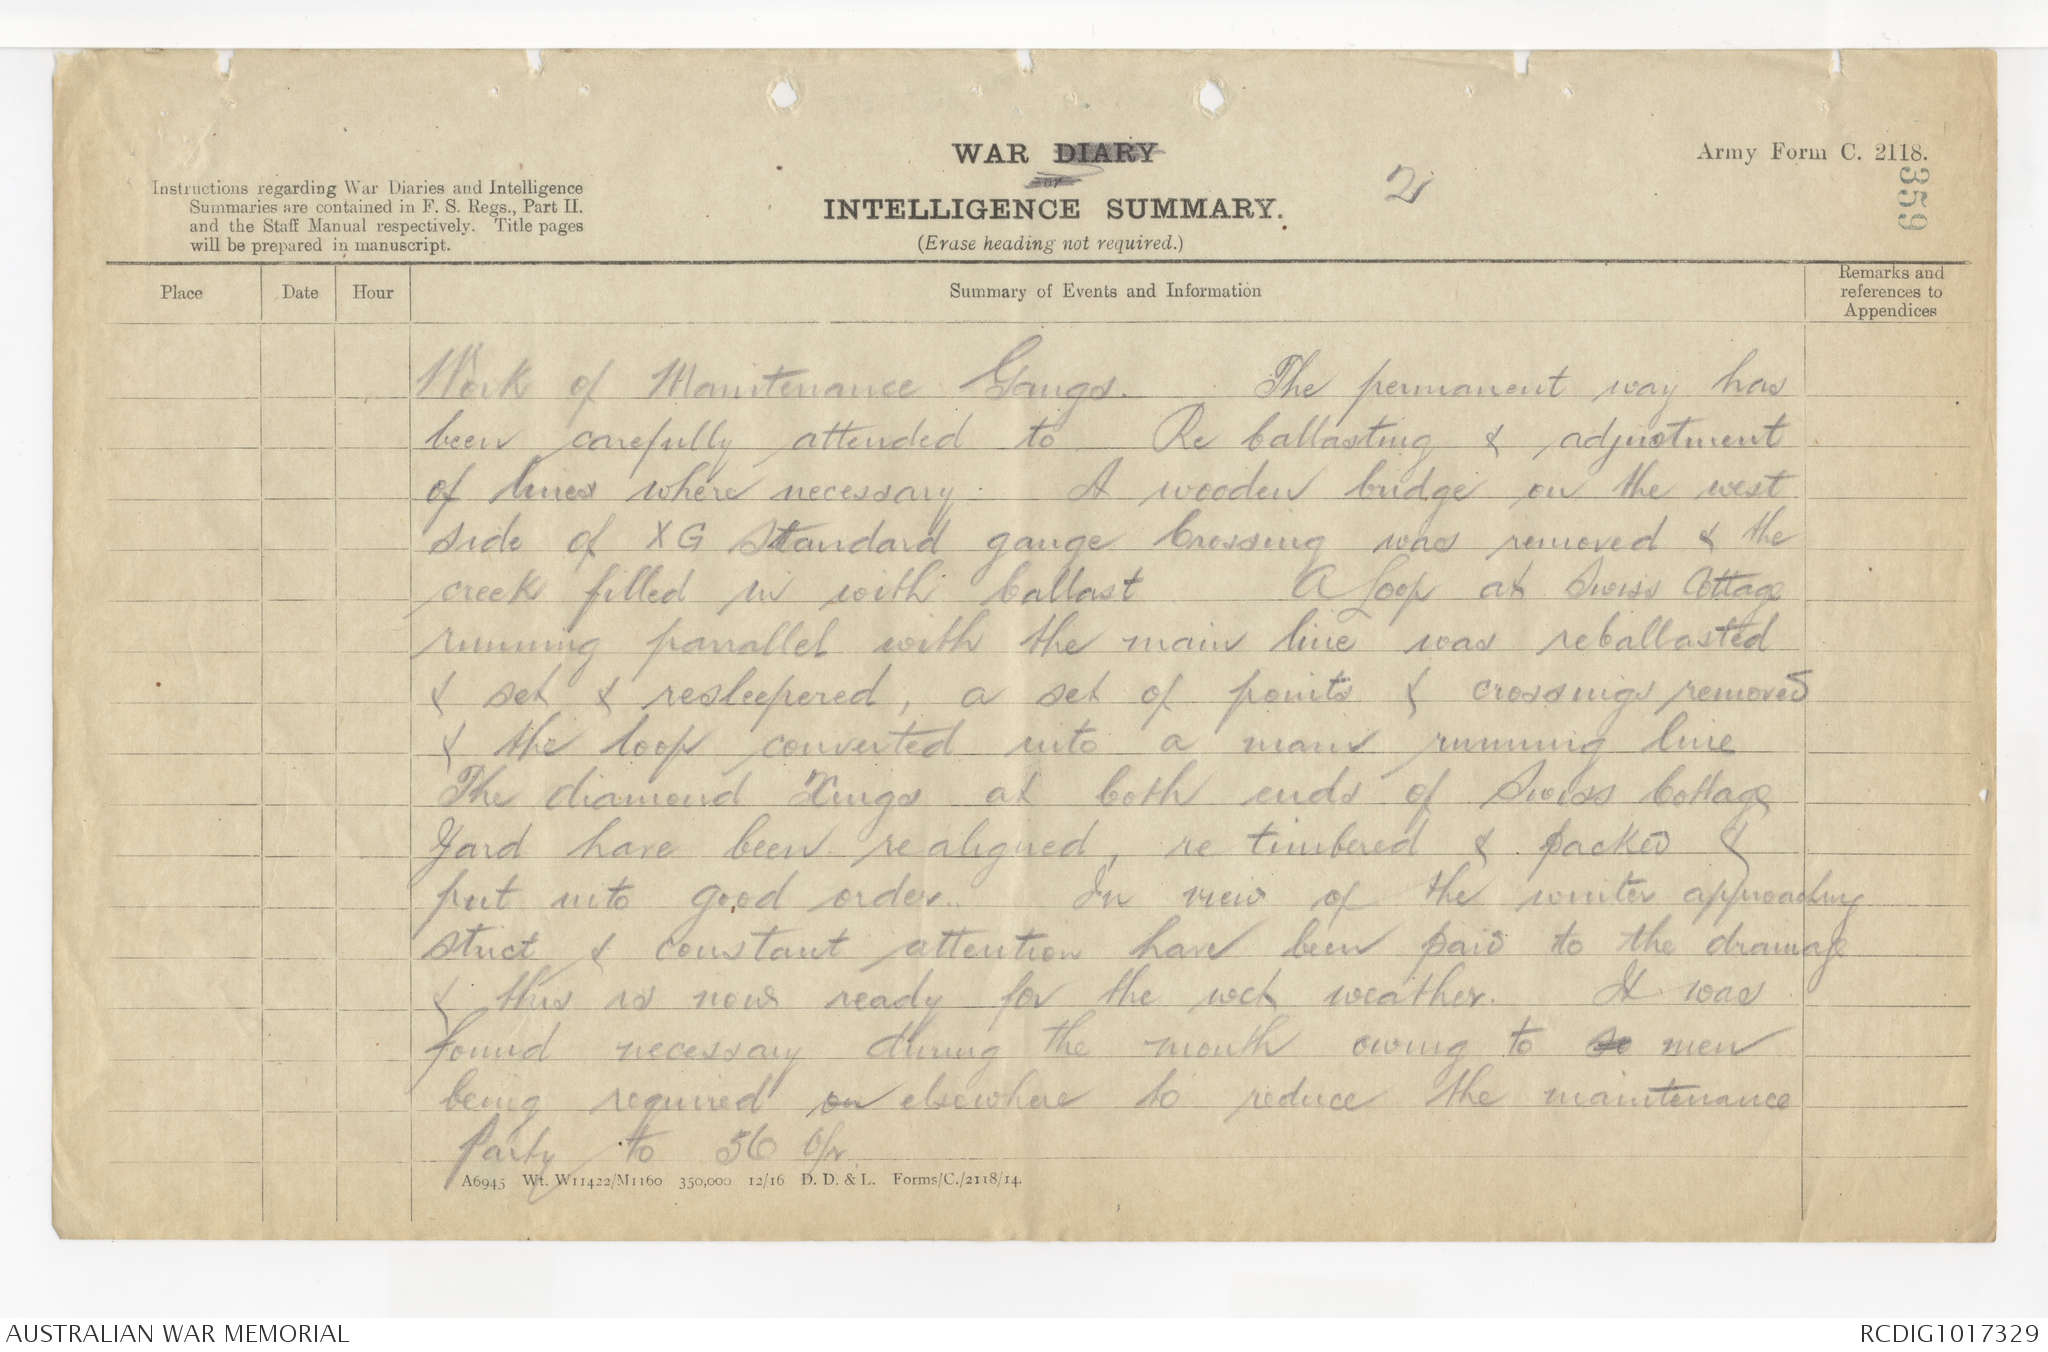 WAR DIARY
or
INTELLIGENCE SUMMARY.
(Erase heading not required.)
2
Army Form C. 2118.
359
Instructions regarding War Diaries and Intelligence
Summaries are contained in F. S. Regs., Part II.
and the Staff Manual respectively. Title pages
will be prepared in manuscript.
Place
Date
Hour
Summary of Events and Information
Remarks and
references to
Appendices
Work of Maintenance Gangs. The permanent way has
been carefully attended to Re ballasting & adjustment
of lines where necessary. A wooden bridge on the west
side of XG Standard gauge Crossing was removed & the
creek filled in with ballast A Loop at Swiss Cottage
running parrallel with the main line was reballasted
& set & resleepered, a set of points & crossings removed
& the loop converted into a main running line
The diamond Xings at both ends of Swiss Cottage
Yard have been realigned, re timbered & packed &
put into good order. In view of the winter approaching
strict & constant attention have been paid to the drainage
& this is now ready for the wet weather. It was
found necessary during the month owing to so men
being required on elsewhere to reduce the maintenance
Party to 56 Opr
A6945 Wt. W11422/M1160 350,000 12/16 D. D. & L. Forms/C./2118/14.
AUSTRALIAN WAR MEMORIAL
RCDIG1017329